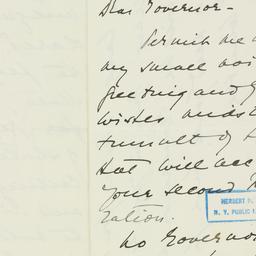 Dear Governor -
Permit me
my small voi
greeting and g
wishes midst
tumult of
that will acc
your second
ration.
No Governo
HERBERT
N. Y. PUBLIC